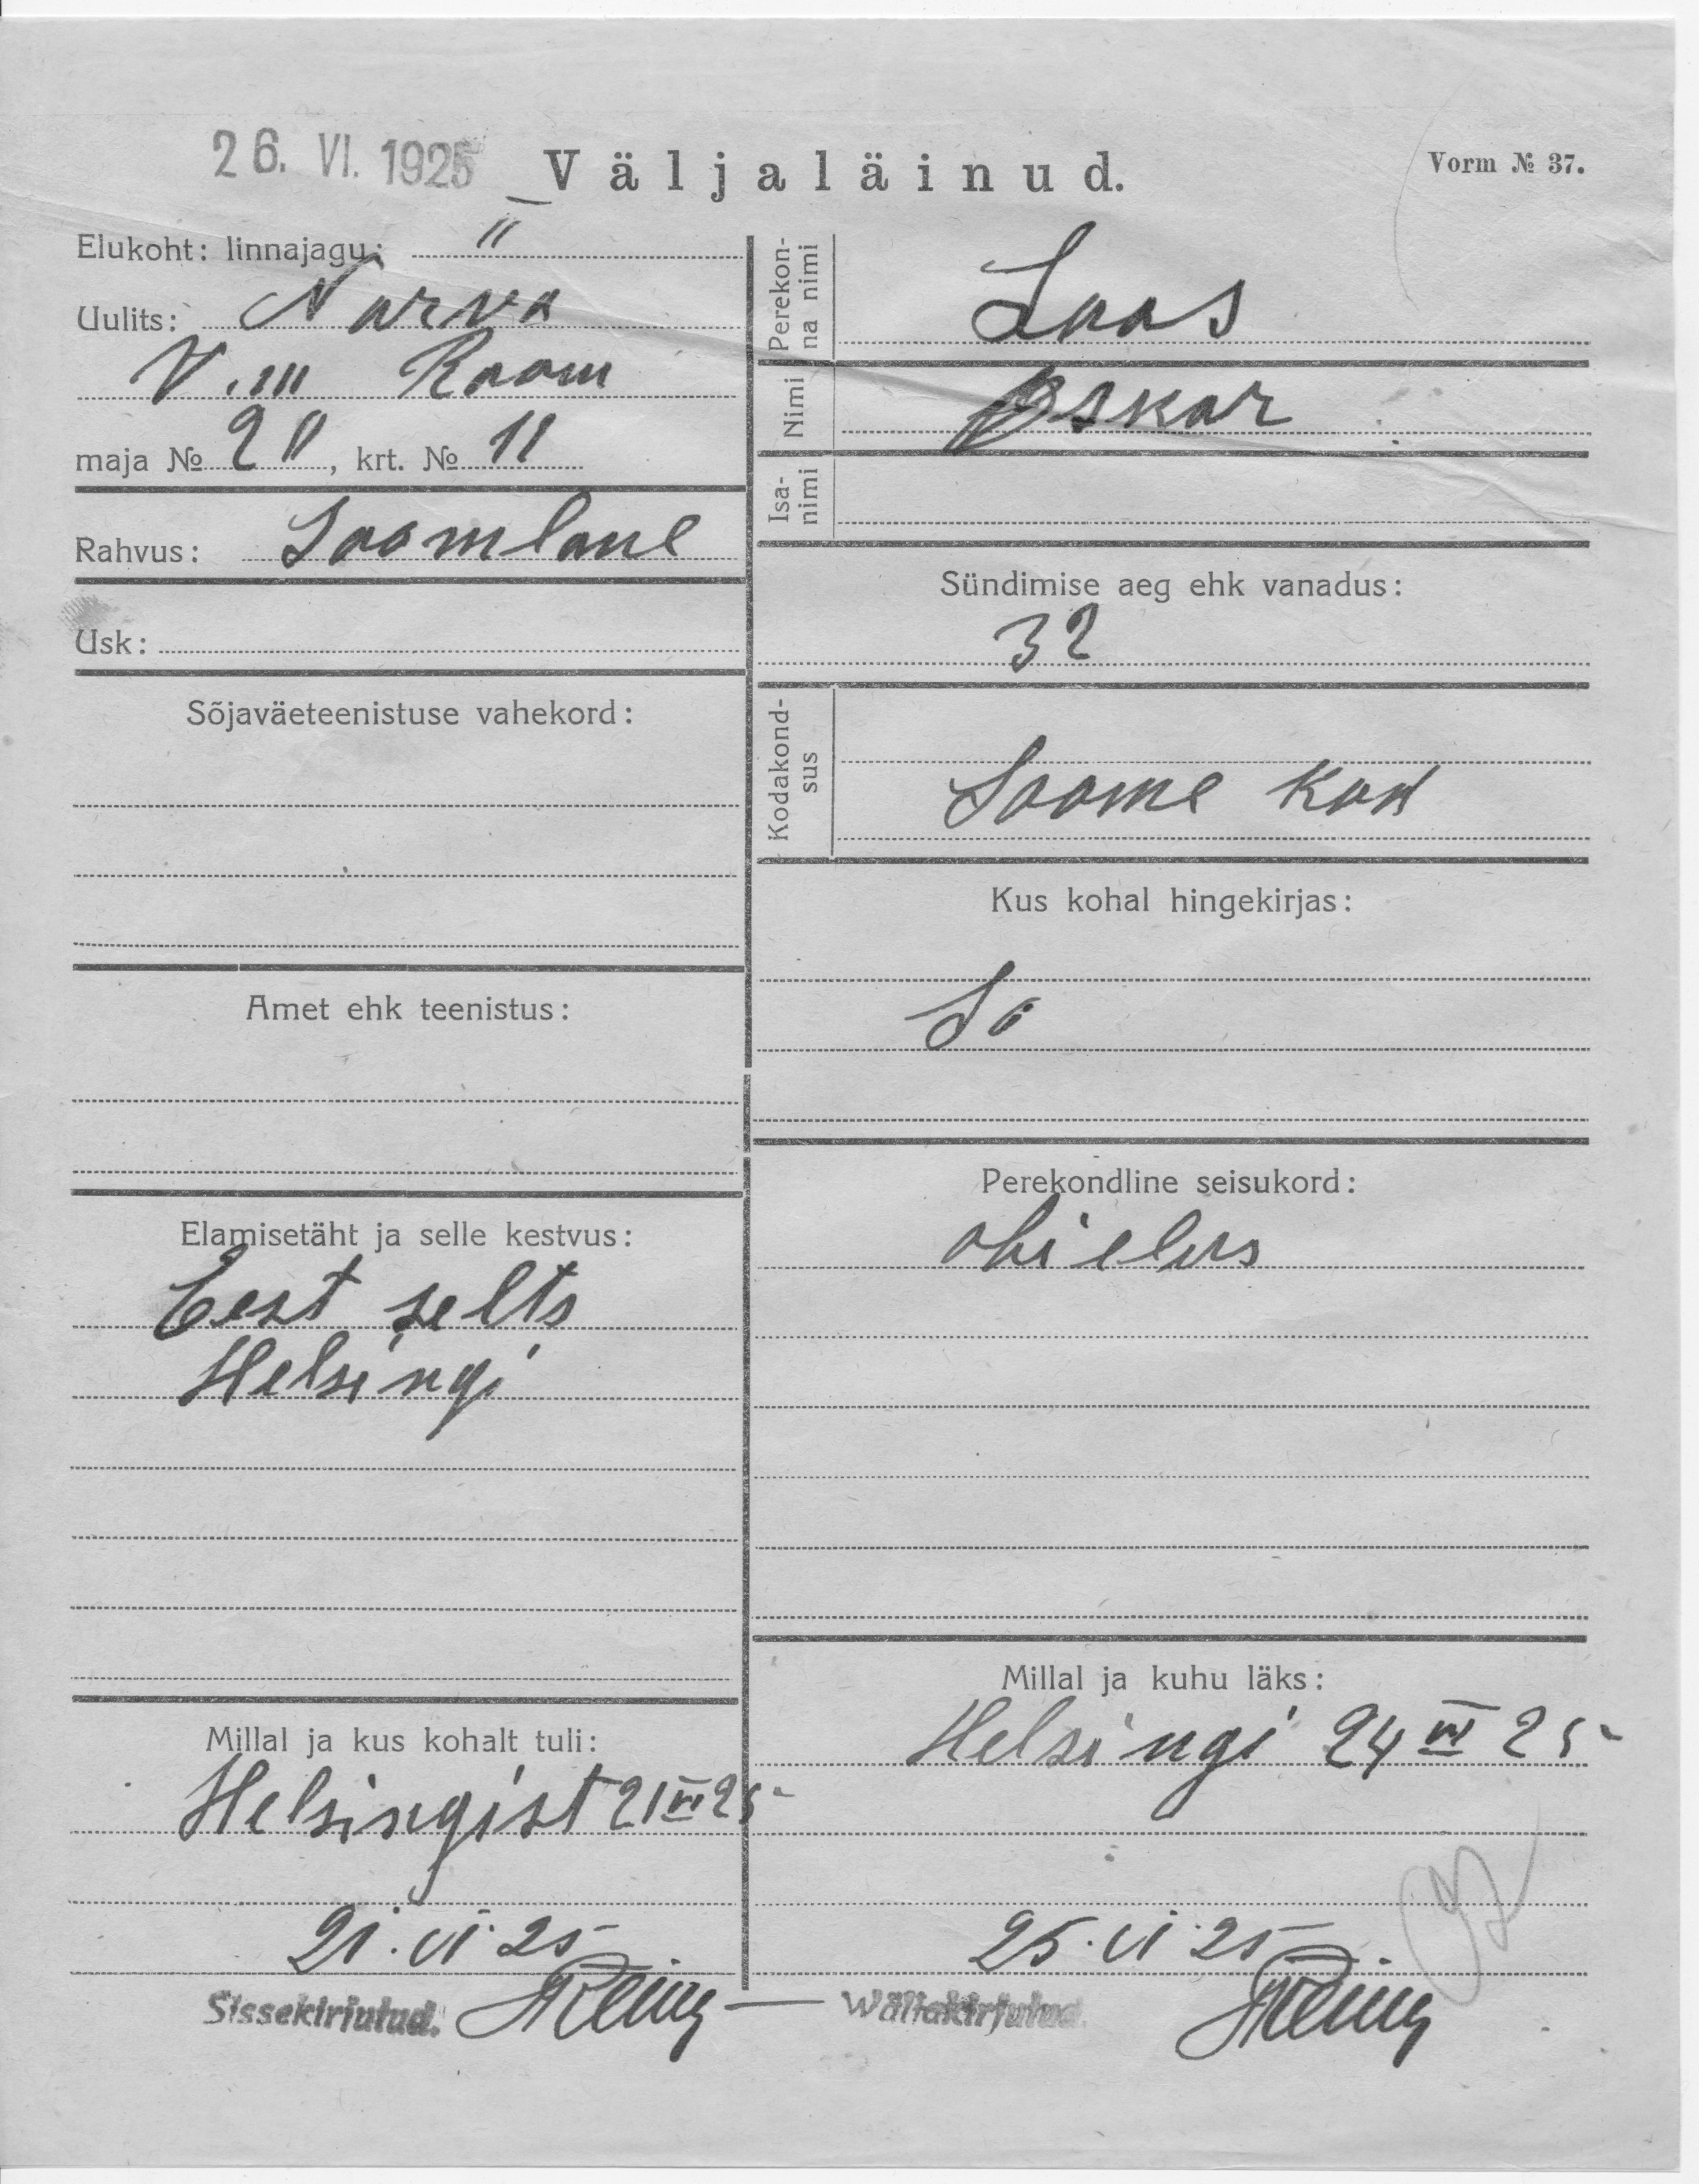 26. VI. 1925 Väljaläinud. Vorm № 37.
Elukoht: linnajagu: II
Uulits: Narva
V.III Room
maja № 20, krt. № 11
Rahvus: Soomlane
Usk:
Sõjaväeteenistuse vahekord:
Amet ehk teenistus:
Elamisetäht ja selle kestvus:
Eest selts
Helsingi
Millal ja kus kohalt tuli:
Helsingist 21 VI 25
21. VI. 25
Sissekirjutud.
Perekon-
na nimi
Laas
Nimi Oskar
Isa-
nimi
Sündimise aeg ehk vanadus:
32
Kodakond-
sus
Soome kod
Kus kohal hingekirjas:
Perekondline seisukord:
abielus
Millal ja kuhu läks:
Helsingi 24 VI 25
25. VI 25
Wäljakirjutud.